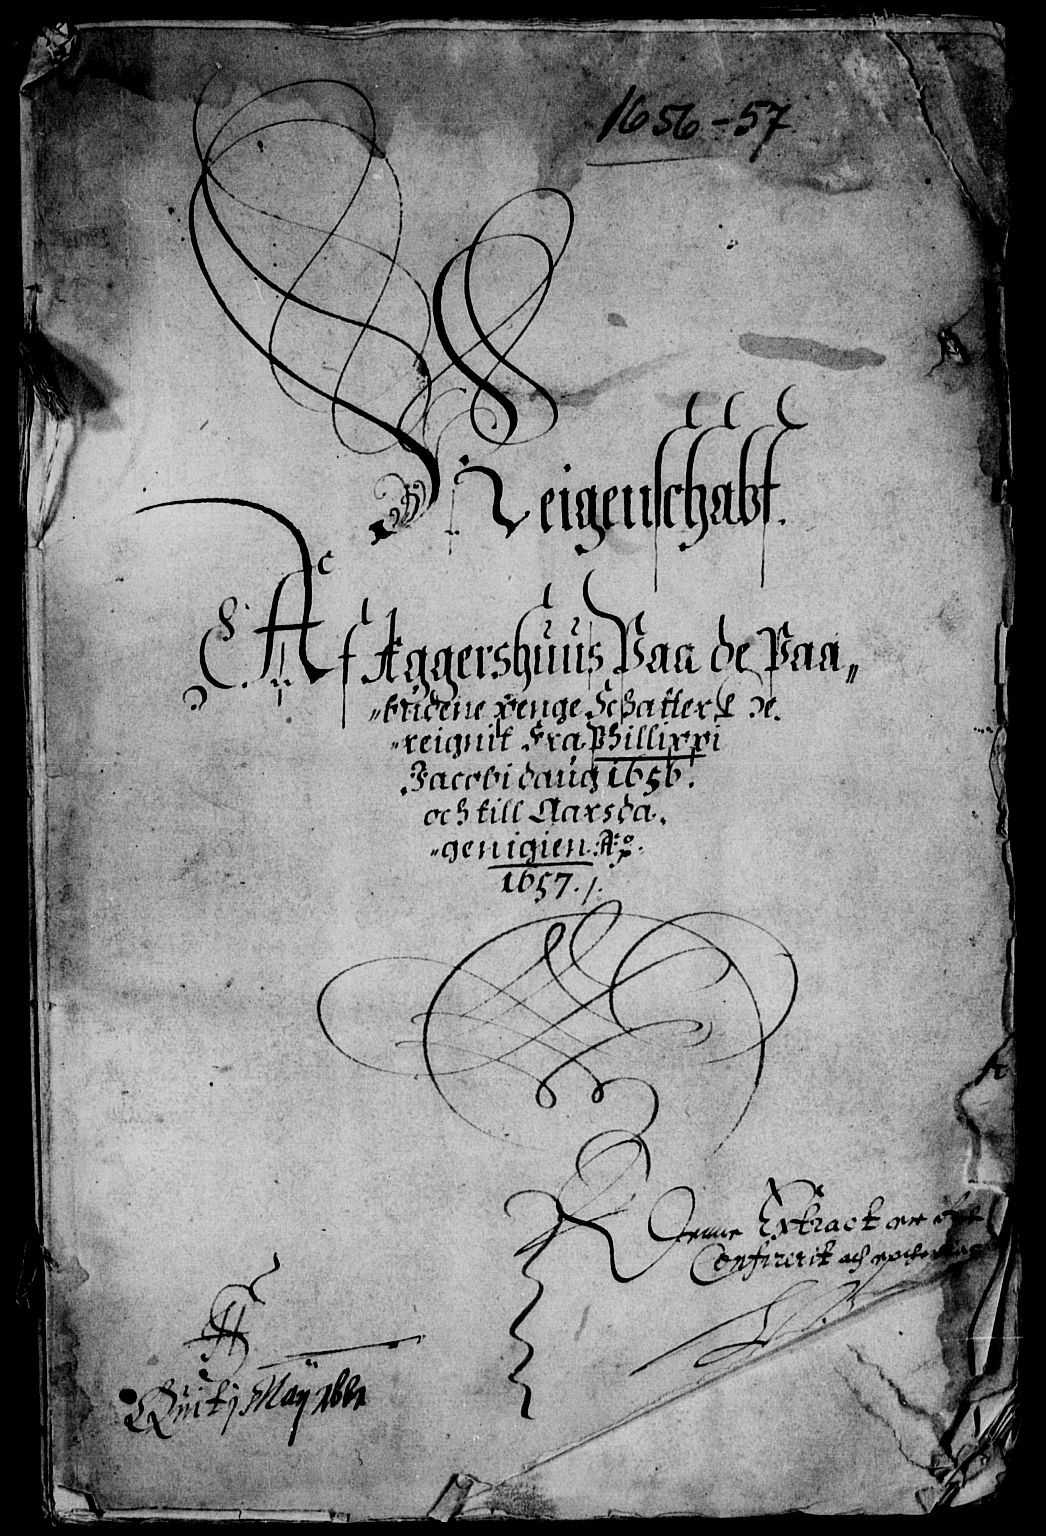 1656-57
Reigenschabt.
Af Aggershuus Paa de Paa„
„budene penge Schatter & de„
„reignit Fra Phillippi
Jacobi daug 1656.
och till Aarsda„
„genigien A͠o.
1657. /.
Denne Extract er
Confirerit och
A
Qvit. j May 1661